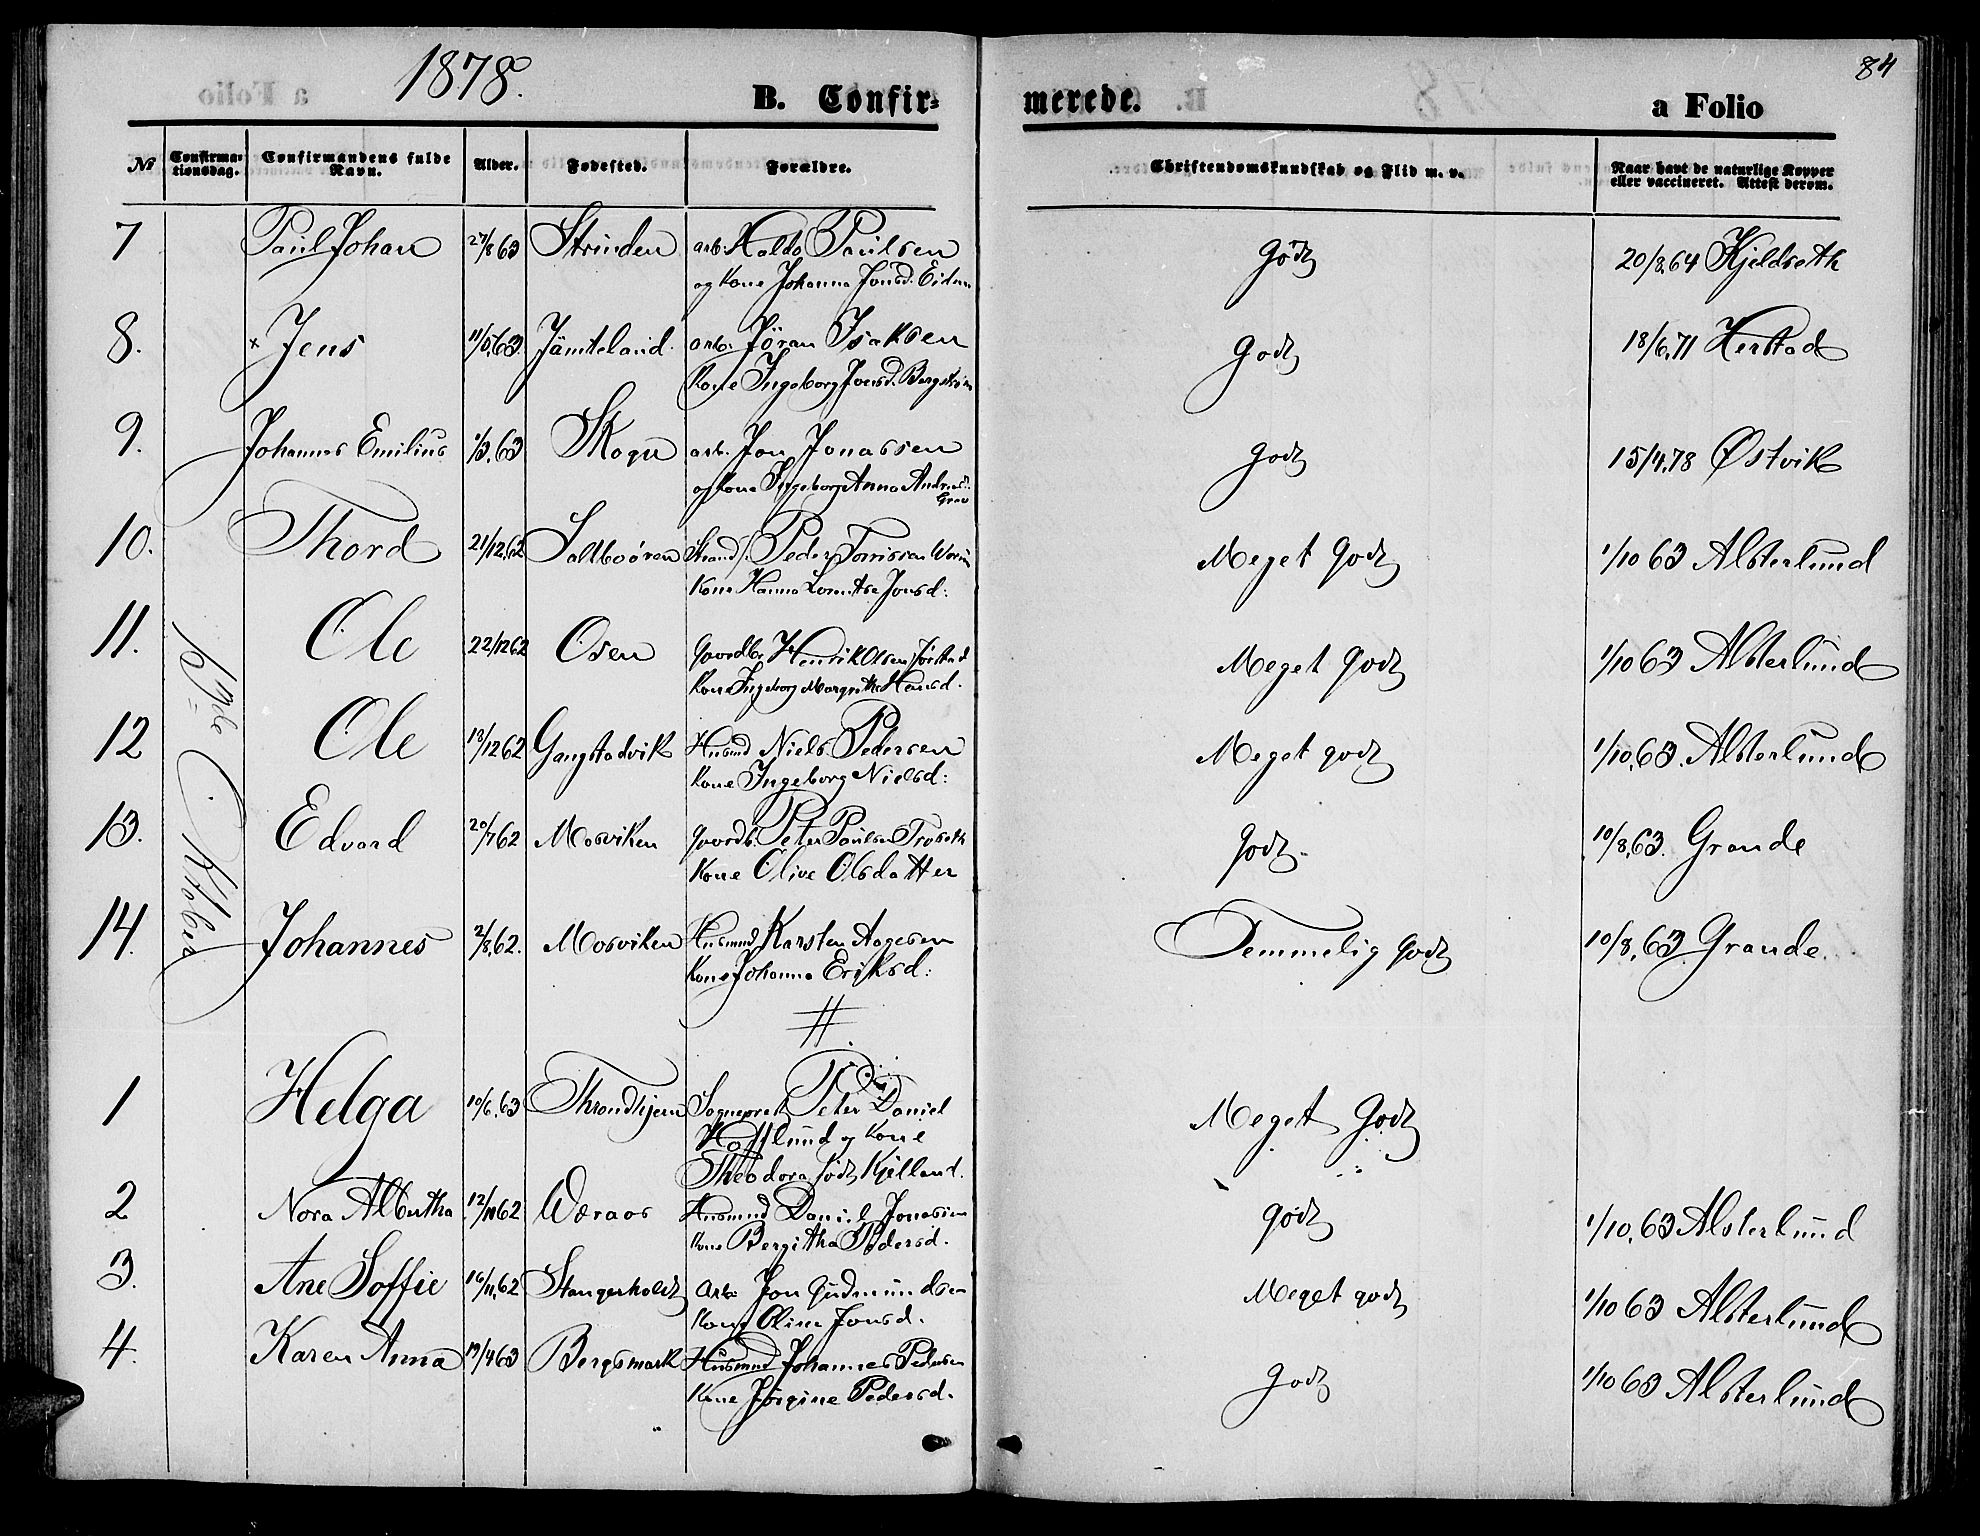 1878.
84
B. Confir=
merede.
a Folio
№
Confirma-
tionsdag.
Confirmandens fulde
Navn.
Alder.
Fødested.
Forældre.
Christendomskundskab og Flid m. v.
Naar havt de naturlige Kopper
eller vaccineret. Attest derom.
7 Paul Johan 27/8 63 Strinden arb. Paulsen godt 20/8.64 Kjeldseth
og Kone Johanna Jonsd. Eidem
8. × Jens 11/5.63 Jämteland. arb. Jöran Isaksen godt 18/6.71 Herstad
Kone Ingeborg Jonsd. Bergström
9. Johannes Emilius 1/3.63 Skogn arb. Jon Jonassen godt 15/4.78 Østvik
og Kone Ingeborg Anna
Grav
10. Thord 21/12.62 Peder Meget godt 1/10 63 Alsterlund
Kone Hanna Jonsd:
11. Ole 22/12 62 Osen Gaardbr. Henrik Olsen Meget godt 1/10 63 Alsterlund
Kone Ingeborg Margrethe Hansd.
12 Ole 13/12 62 Gangstadvik Husmd Niels Pedersen Meget godt 1/10.63. Alsterlund
Kone Ingeborg Nielsd:
13. Edvard 20/7 62 Mosviken Gaardb. Peter Paulsen godt 10/8.63. Grande
Kone Olive Olsdatter
14. Johannes 2/8.62. Mosviken Husmnd Karsten Aagesen Temmelig godt 10/8.63 Grande.
Kone Johanna Eriksd:
Oktober
#
1 Helga 10/6.63 Throndhjem Sognepræst Peter Daniel Meget godt
Hofflund og Kone
Theodora født Kjelland.
2 Nora Albertha 12/10 62 Wæraas Husmnd Daniel Jonassen godt 1/10.63 Alsterlund
Kone Bergitha Pedersd.
3. Ane Soffie 16/11.62 Stangerholdt Arb: Jon Gudmundsen Meget godt 1/10 63 Alsterlund
Kone Oline Jonsd.
4. Karen Anna 19/4 63 Bergsmark Husmnd Johannes Pedersen godt 1/10 63 Alsterlund
Kone Jørgine Pedersd.